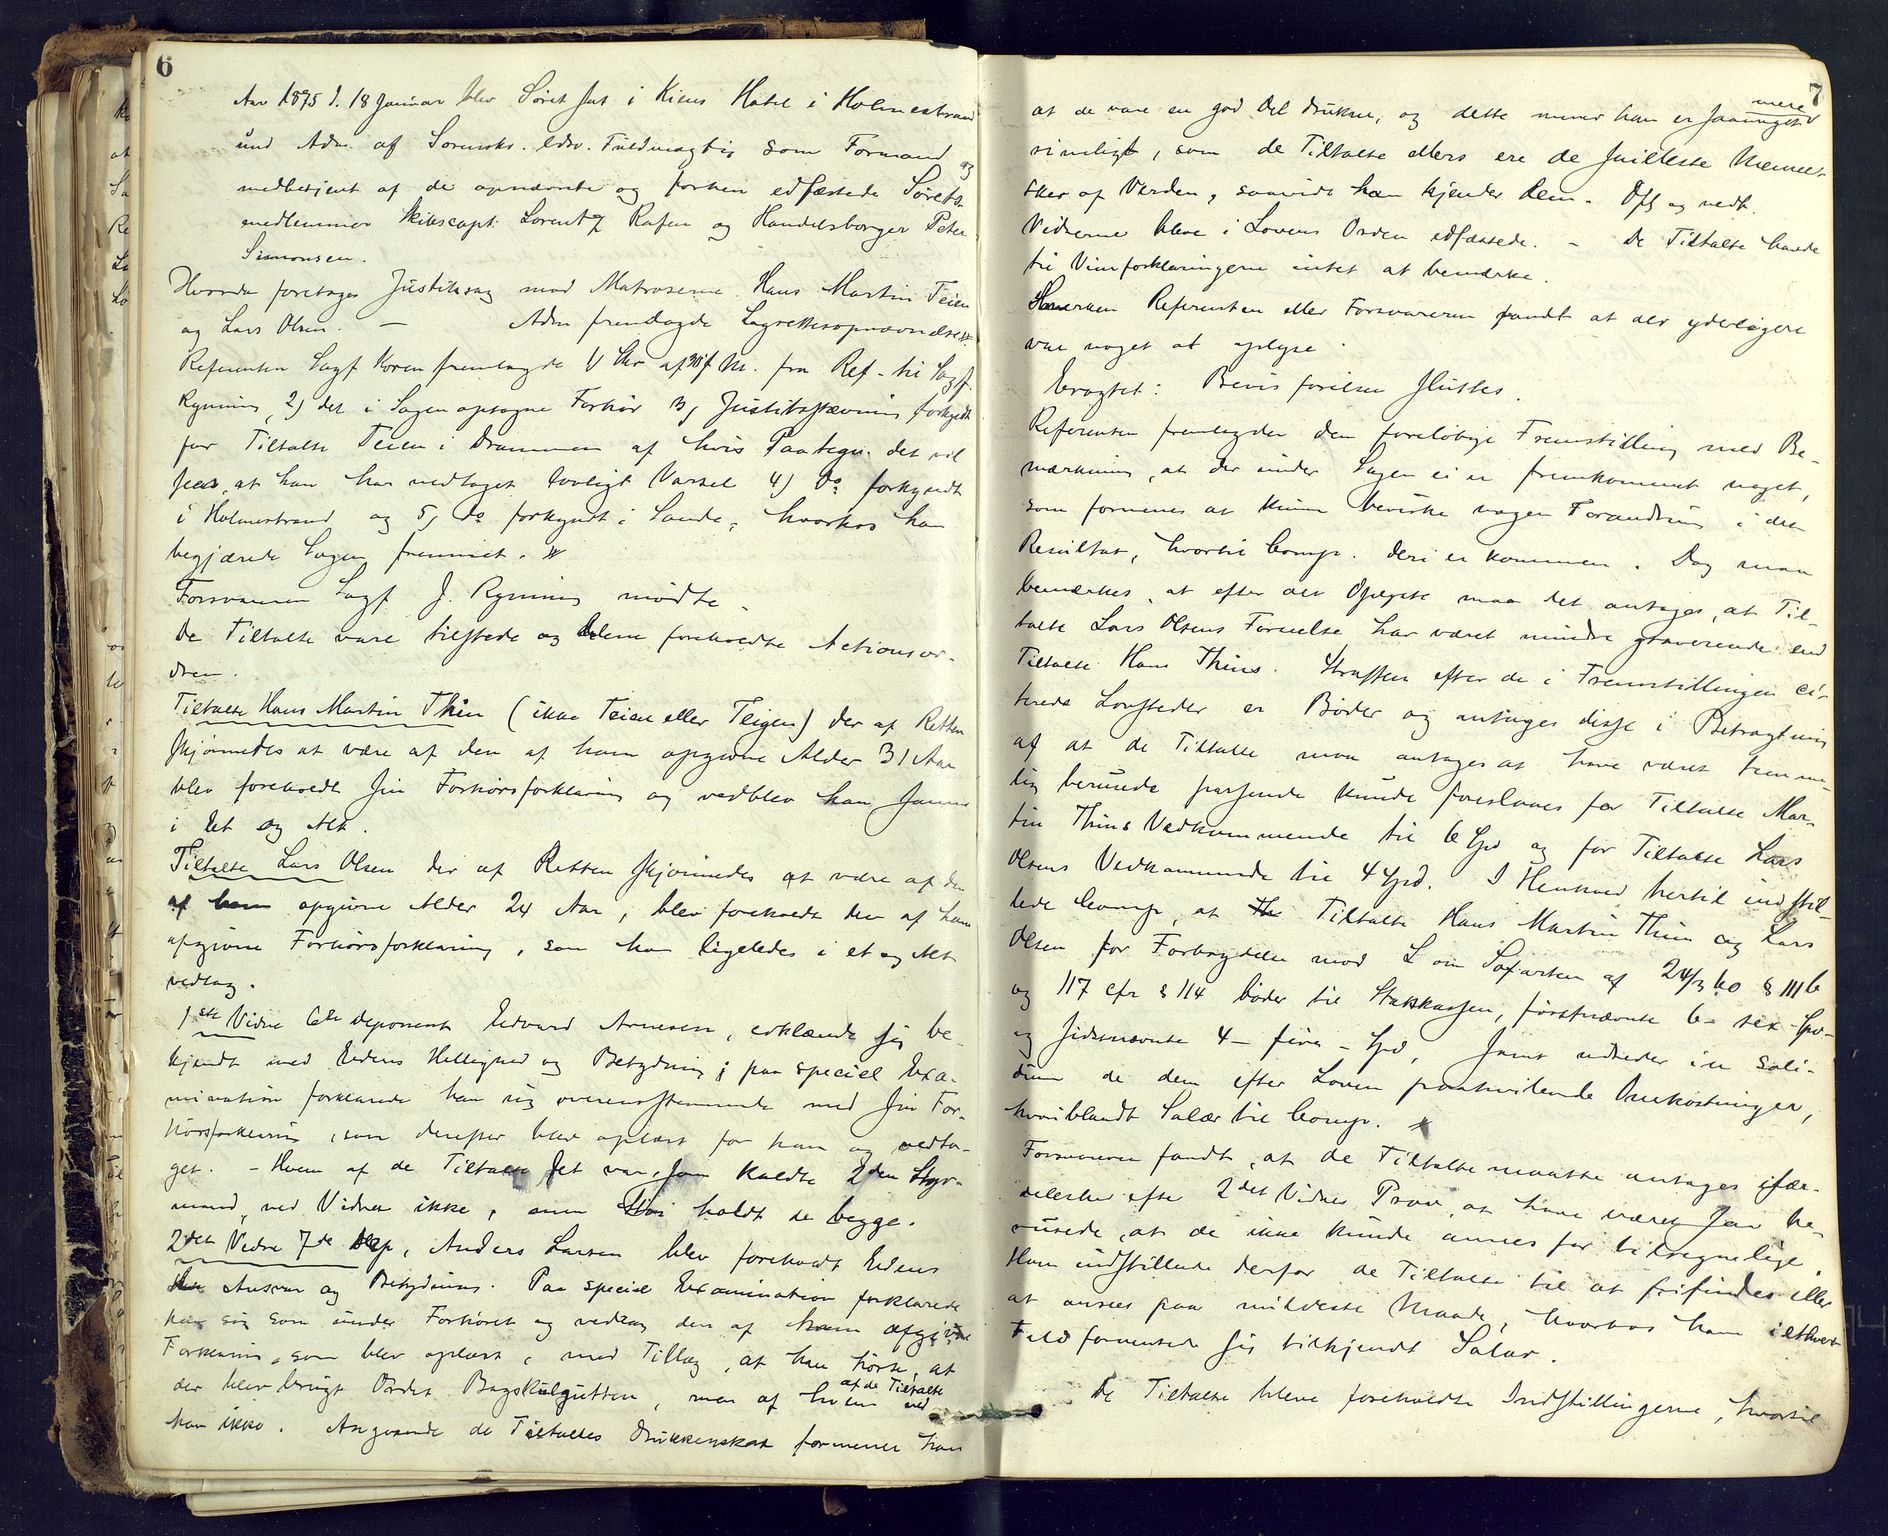 6
Aar 1875 d. 18 Januar blev Søret sat i Kiens Hotel i Holmestrand
und Adm. af Sorensk. edsv. Fuldmægtig som Formand og
medbetjent af de opnævnte og forhen edfæstede Sørets
medlemmer Skibscapt. Lorentz Rafen og Handelsborger Peter
Simonsen.
Hvorda foretoges Justitssag mod Matroserne Hans Martin Teien
og Lars Olsen. — Adm fremlagde Lagrettesopnævnelse.
Referenten Sagf Koren fremlagde 1) Skr af f. M. fra Ref. til Sagf.
Rynning, 2) det i Sagen optagne Forhør 3) Justitsstævning forkyndt
for Tiltalte Teien i Drammen af hvis Paategn. det vil
sees, at han har vedtaget lovligt Varsel 4) Do forkyndt
i Holmestrand og 5) do forkyndt i Sande, hvorhos han
begjærede Sagen fremmet.
Forsvareren Sagf J. Rynning mødte.
De Tiltalte vare tilstede og blene foreholdte Actionsor-
dren.
Tiltalte Hans Martin Thin (ikke Teien eller Teigen) der af Retten
skjønnedes at være af den af ham opgivne Alder 31 Aar
blev foreholdt sin Forhørsforklaring og vedblev han samme
i Et og Alt.
Tiltalte Lars Olsen der af Retten skjønnedes at være af den
af ham opgivne Alder 24 Aar, blev foreholdt den af ham
afgivne Forhørsforklaring, som han ligeledes i et og Alt
vedtog.
1ste Vidne 6te Deponent Edvard Arnesen, erklærede sig be-
kjendt med Edens Hellighed og Betydning; paa speciel Exa-
mination forklarede han sig overensstemmende med sin For-
hørsforklaring, som derefter blev oplæst for ham og vedta-
get. - Hvem af de Tiltalte det var, som kaldte 2den Styr-
mand, ved Vidnet ikke, men holdt de begge.
2det Vidne 7de Dep, Anders Larsen blev foreholdt Edens
Ansvar og Betydning. Paa speciel Examination forklarede
han sig som under Forhøret og vedtog den af ham afgivne
Forklaring, som blev oplæst, med Tillæg, at han hørte, at
der blev brugt Ordet Bagskulgutten, men af hvem af de Tiltalte ved
han ikke. Angaaende de Tiltaltes Drukkenskab formener han
7
at de vare en god Del drukne, og dette mener han er saameget mere
rimeligt, som de Tiltalte ellers ere de snilleste Mennes-
sker af Verden, saavidt han kjender dem. Opl og vedt.
Vidnerne bleve i Lovens Orden edfæstede. - De Tiltalte havde
til Vinforklaringerne intet at bemærke.
Hverken Referenten eller Forsvareren fandt at der yderligere
var noget at oplyse.
Eragtet: Bevisførelsen sluttes.
Referenten fremlagde den foreløbige Fremstilling med Be-
mærkning, at der under Sagen ei er fremkommet noget,
som formenes at kunne bevirke nogen Forandring i det
Resultat, hvortil Comp. deri er kommen. Dog maa
bemærkes, at efter det Oplyste maa det antages, at Til-
talte Lars Olsens Forseelse har været mindre graverende end
Tiltalte Hans Thins. Straffen efter de i Fremstillingen ci-
terede Lovsteder er Bøder og antages disse i Betragtning
af at de Tiltalte maa antages at have været temme-
lig berusede passende kunde foreslaaes for Tiltalte Mar-
tin Thins Vedkommende til 6 Spd og for Tiltalte Lars
Olsens Vedkommende til 4 Spd. I Henhold hertil indstil-
lede Comp, at Tiltalte Hans Martin Thin og Lars
Olsen for Forbrydelse mod L om Søfarten af 24/3 60 § 111 b
og 117 cfr § 114 bøder til Statskassen, førstnævnte 6- sex- Spd-
og sidstnævnte 4- fire - Spd, samt udreder in soli-
dum de dem efter Loven paahvilende Omkostninger,
hvoriblandt Salær til Comp.
Forsvareren fandt, at de Tiltalte maatte antages især-
deleshed efter 2det Vidnes Prov, at have været saa be-
rusede, at de ikke kunde ansees for tilregnelige.
Han indstillede derfor de Tiltalte til at frifindes eller
at ansees paa mildeste Maade, hvorhos han i ethvert
Fald formentede sig tilkjendt Salær.
De Tiltalte bleve foreholdte Indstillingerne, hvortil